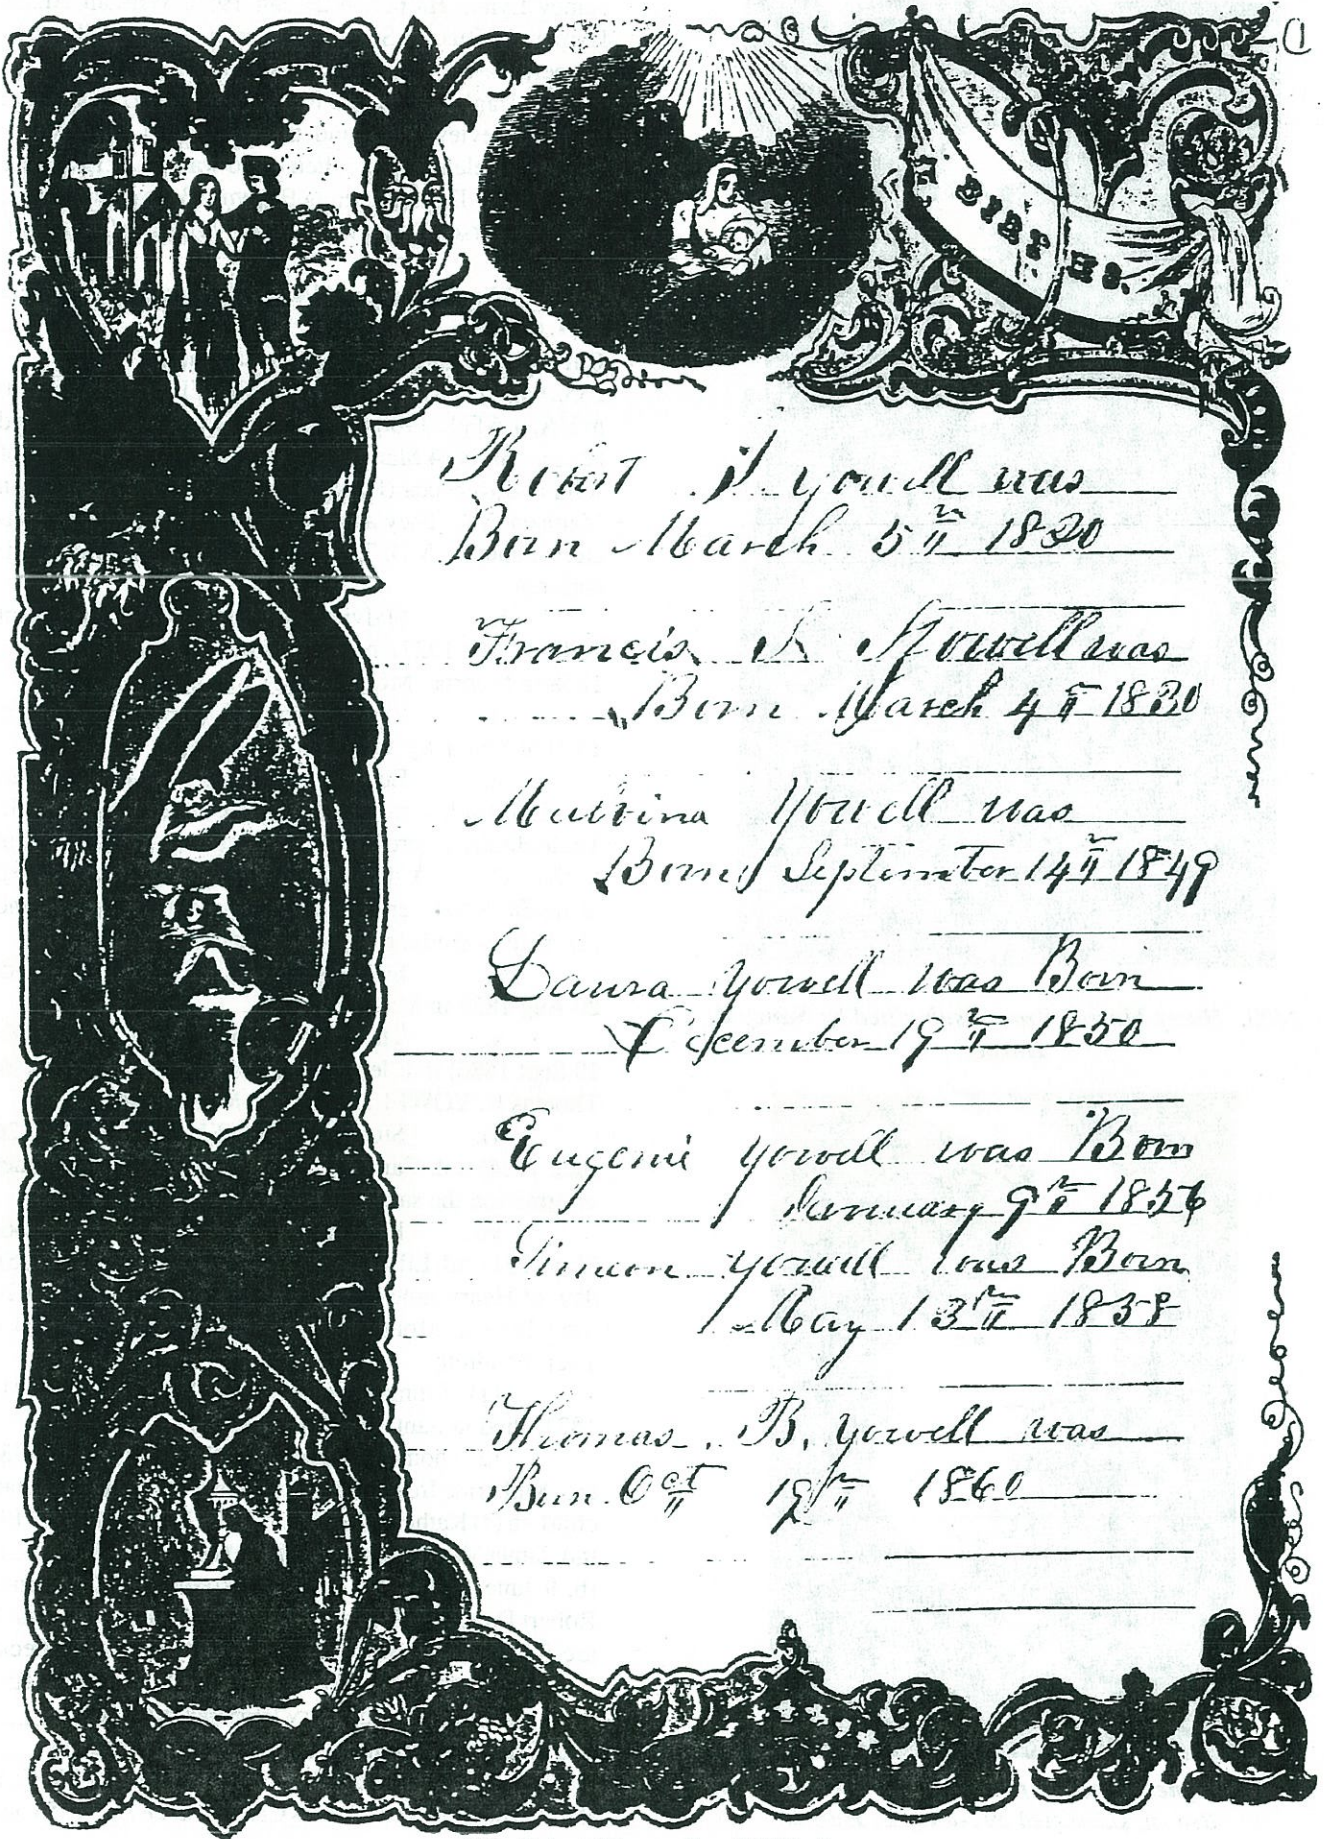 BIRTHS.
Robert yowell was
Born March 5th 1820
Francis S Yowell was
Born March 4th 1830
Mulvina Yowell was
Born September 14th 1849
Laura yowell was Born
December 19th 1850
Eugenie yowell was Born
January 9th 1856
Simeon yowell was Born
May 13th 1858
Thomas. B. yowell was
Born Oct 1860